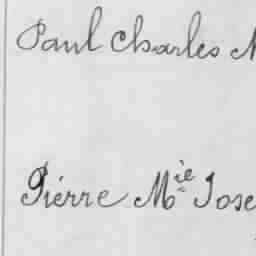 Paul Charles
Pierre Mie Jose